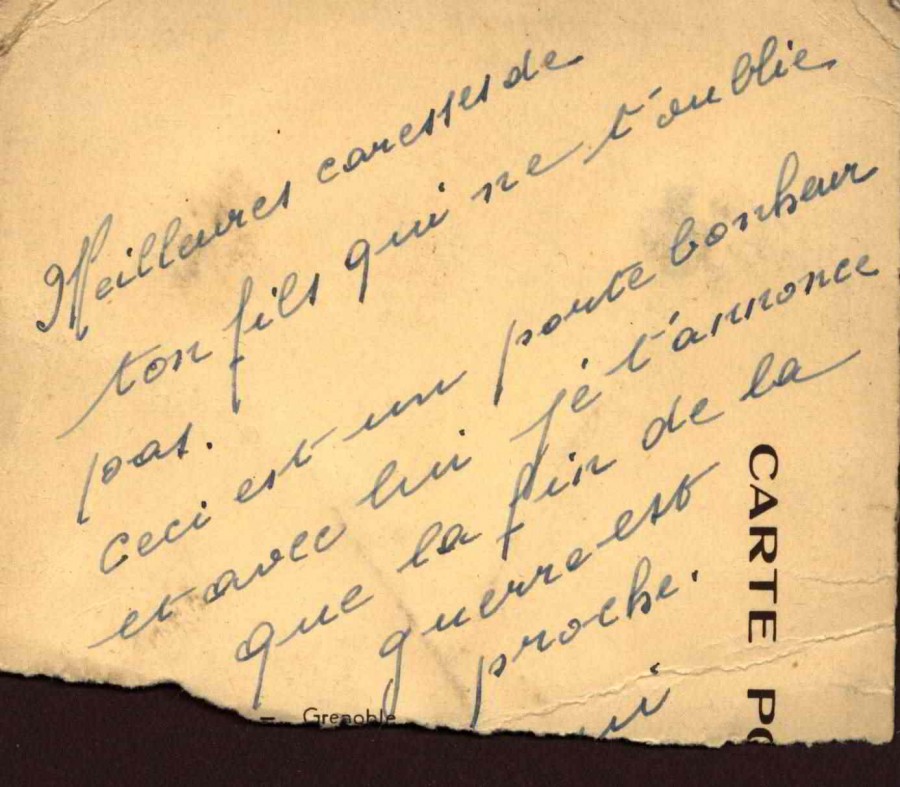 Meilleures caresses de
ton fils qui ne t'oublie
pas.
Ceci est un porte bonheur
et avec lui je t'annonce
que la fin de la
guerre est
proche.
CARTE
Grenoble